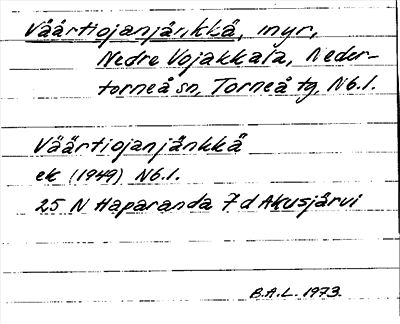 Väärtiojanjänkkä, myr,
Nedre Vojakkala, Neder-
torneå sn, Torneå tg Nb.l.
Väärtiojanjänkkä
ek (1949) Nb.l.
25 N Haparanda 7d Akusjärvi
B.A.L. 1973.